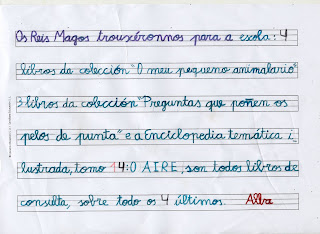 Os Reis Magos trouxéronnos para a escola: 4
libros da colección "O meu pequeno animalario"
3 libros da colección "Preguntas que poñen os
pelos de punta" e a Enciclopedia temática i_
lustrada, tomo 14: O AIRE, son todos libros de
consulta, sobre todo os 4 últimos. Alba